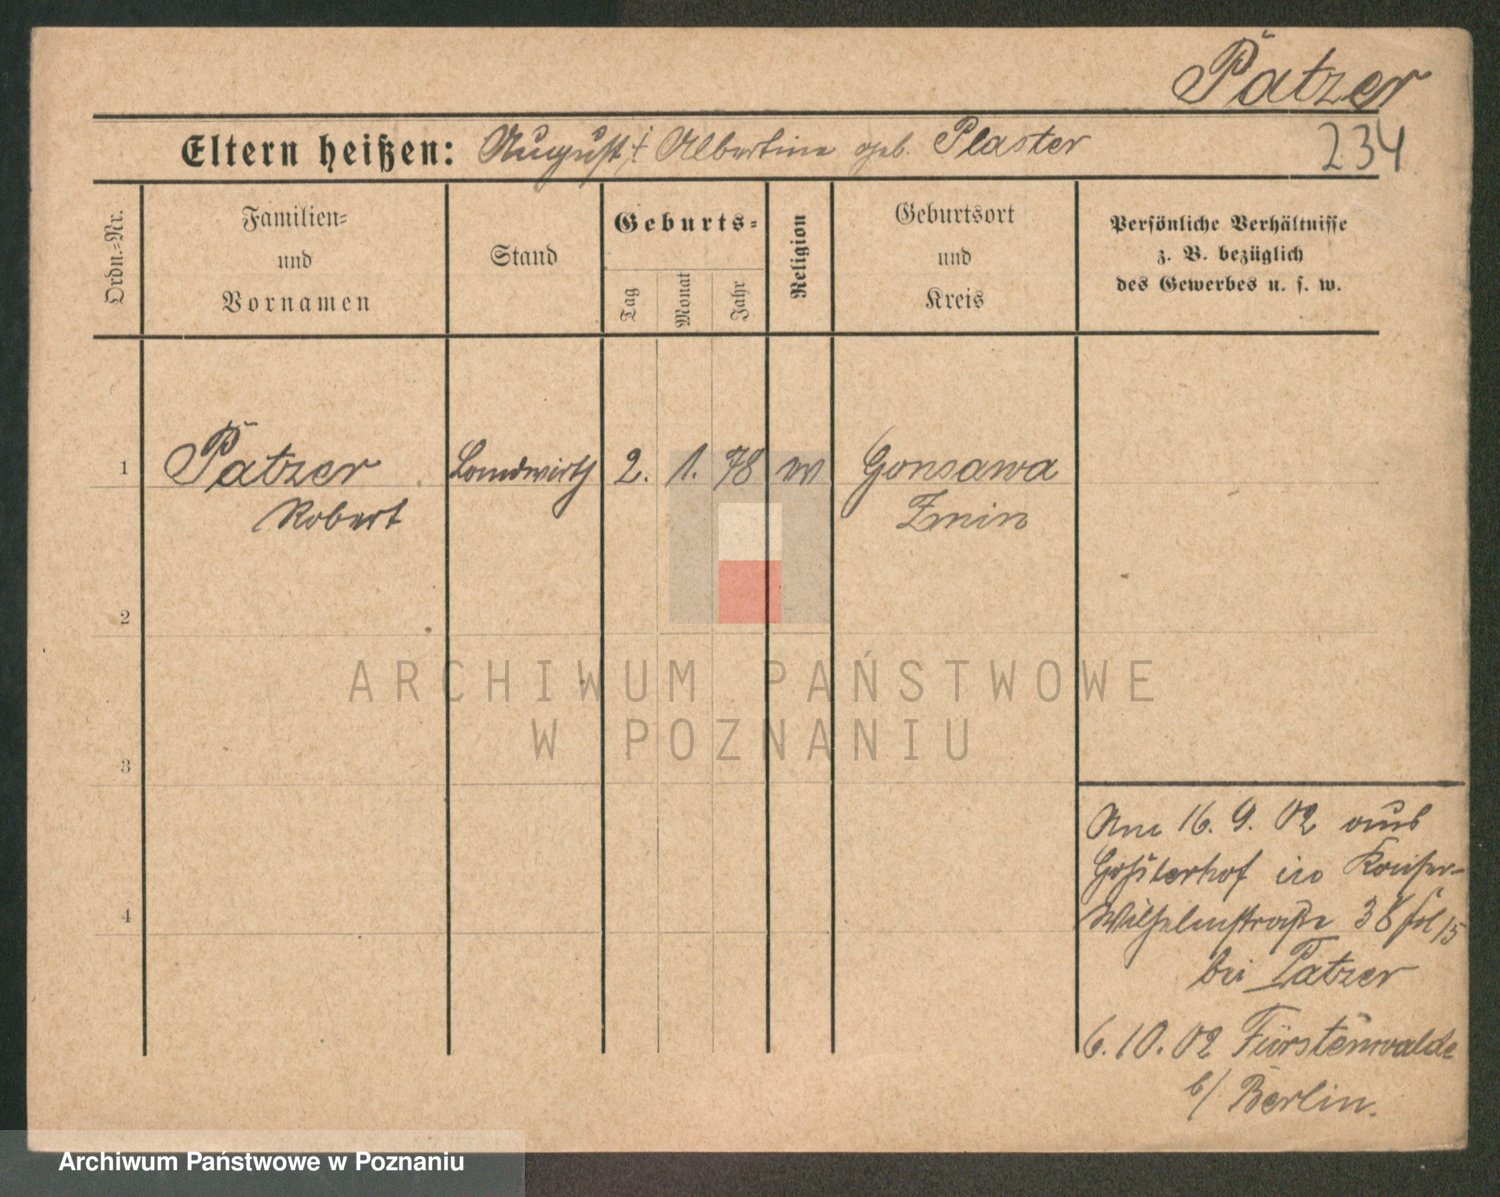 Pätzer
234
Eltern heißen: August, † Albertine geb. Plaster
Ordn.=Nr.
Familien=
und
Vornamen
Stand
Geburts=
Tag
Monat
Jahr
Religion
Geburtsort
und
Kreis
Persönliche Verhältnisse
z. B. bezüglich
des Gewerbes u. s. w.
1
Pätzer
Robert
Landwirth
2. 1. 78
Gonsawa
Znin
2
3
4
ARCHIWUM PAŃSTWOWE
W POZNANIU
16. 9. 02 aus
in Kaiser-
Wilhelmstraße 38
bei Patzer
6. 10. 02 Fürstenwalde
b/ Berlin.
Archiwum Państwowe w Poznaniu